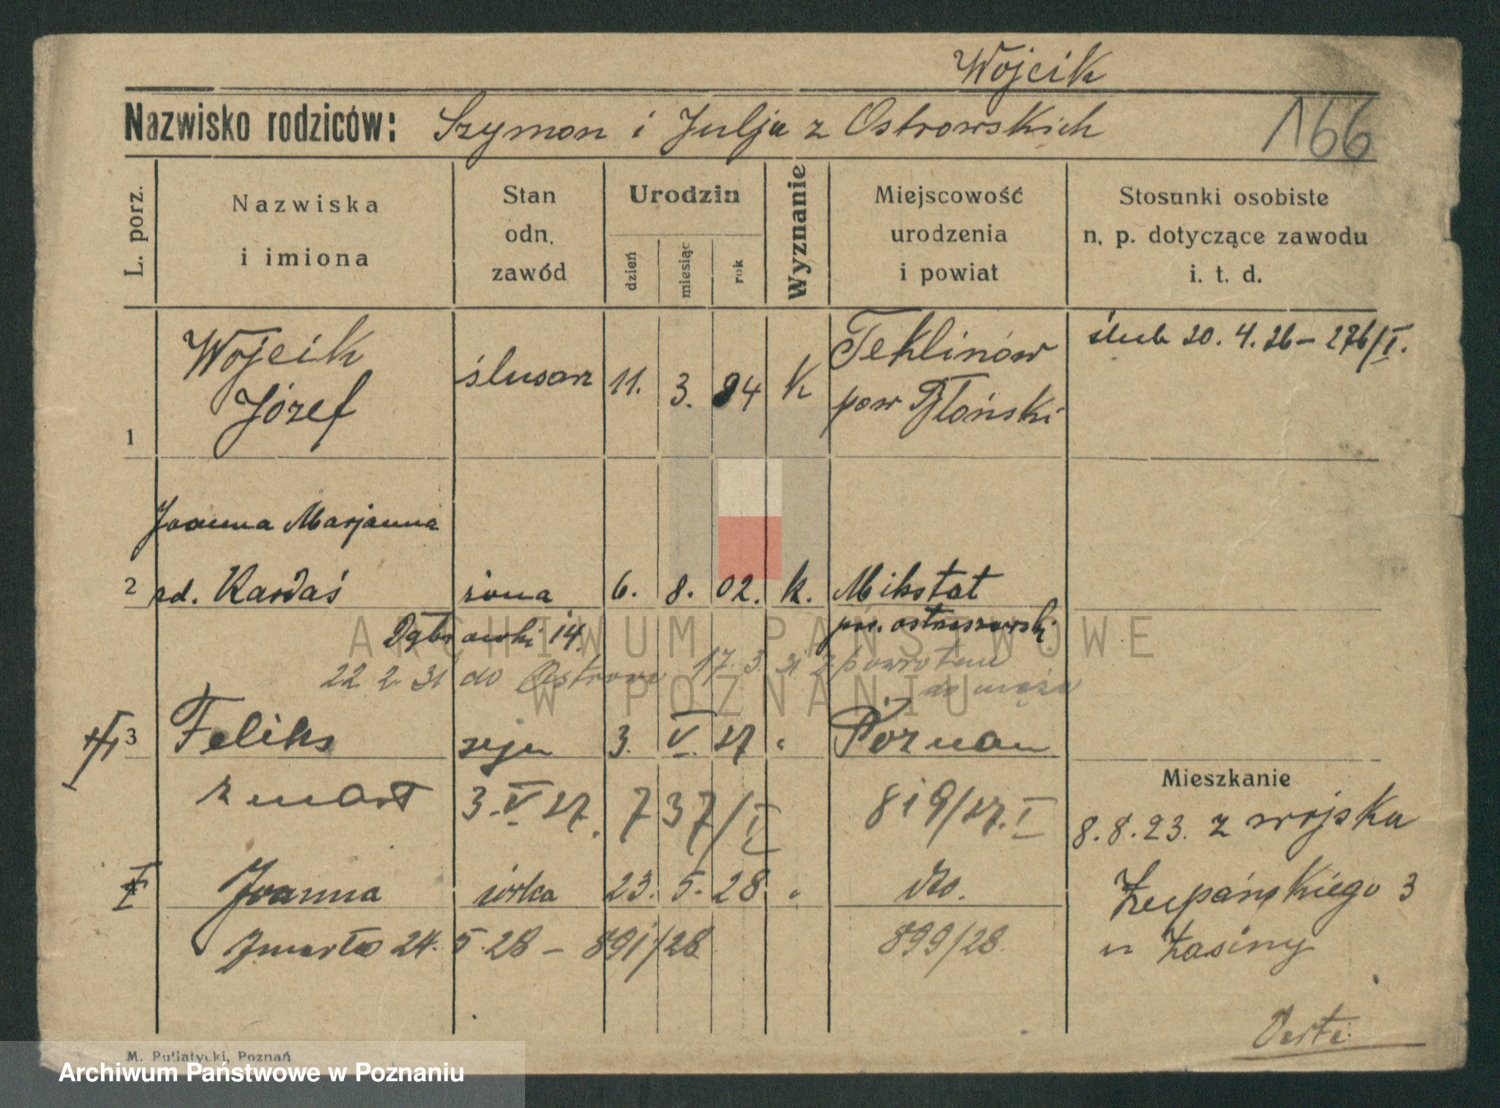 Wojcik
Nazwisko rodziców: Szymon i Julja z Ostrowskich
166
L. porz.
Nazwiska
i imiona
Stan
odn.
zawód
Urodzin
dzień
miesiąc
rok
Wyznanie
Miejscowość
urodzenia
i powiat
Stosunki osobiste
n. p. dotyczące zawodu
i. t. d.
1 Wojcik Józef ślusarz 11. 3. 94 k Teklinów
pow Płoński
ślub 20. 4. 26 – 276/I.
Joanna Marjanna
2 zd. Kardaś żona 6. 8. 02. k. Mikstat
pow. ostrzeszowski
14.
22 2 31 do Ostrowa 17. 3. 31 z powrotem
do męża
3 Feliks syn 3. V. 27 " Poznan
zmart 3. V 27. 737/I 819/27. I
Joanna córka 23. 5. 28 " dto.
zmarła 24. 5. 28 – 891/28 899/28
Mieszkanie
8. 8. 23. z wojska
Żupańskiego 3
u Łasiny
Verte
M. Putiatycki, Poznań
ARCHIWUM PAŃSTWOWE
W POZNANIU
Archiwum Państwowe w Poznaniu